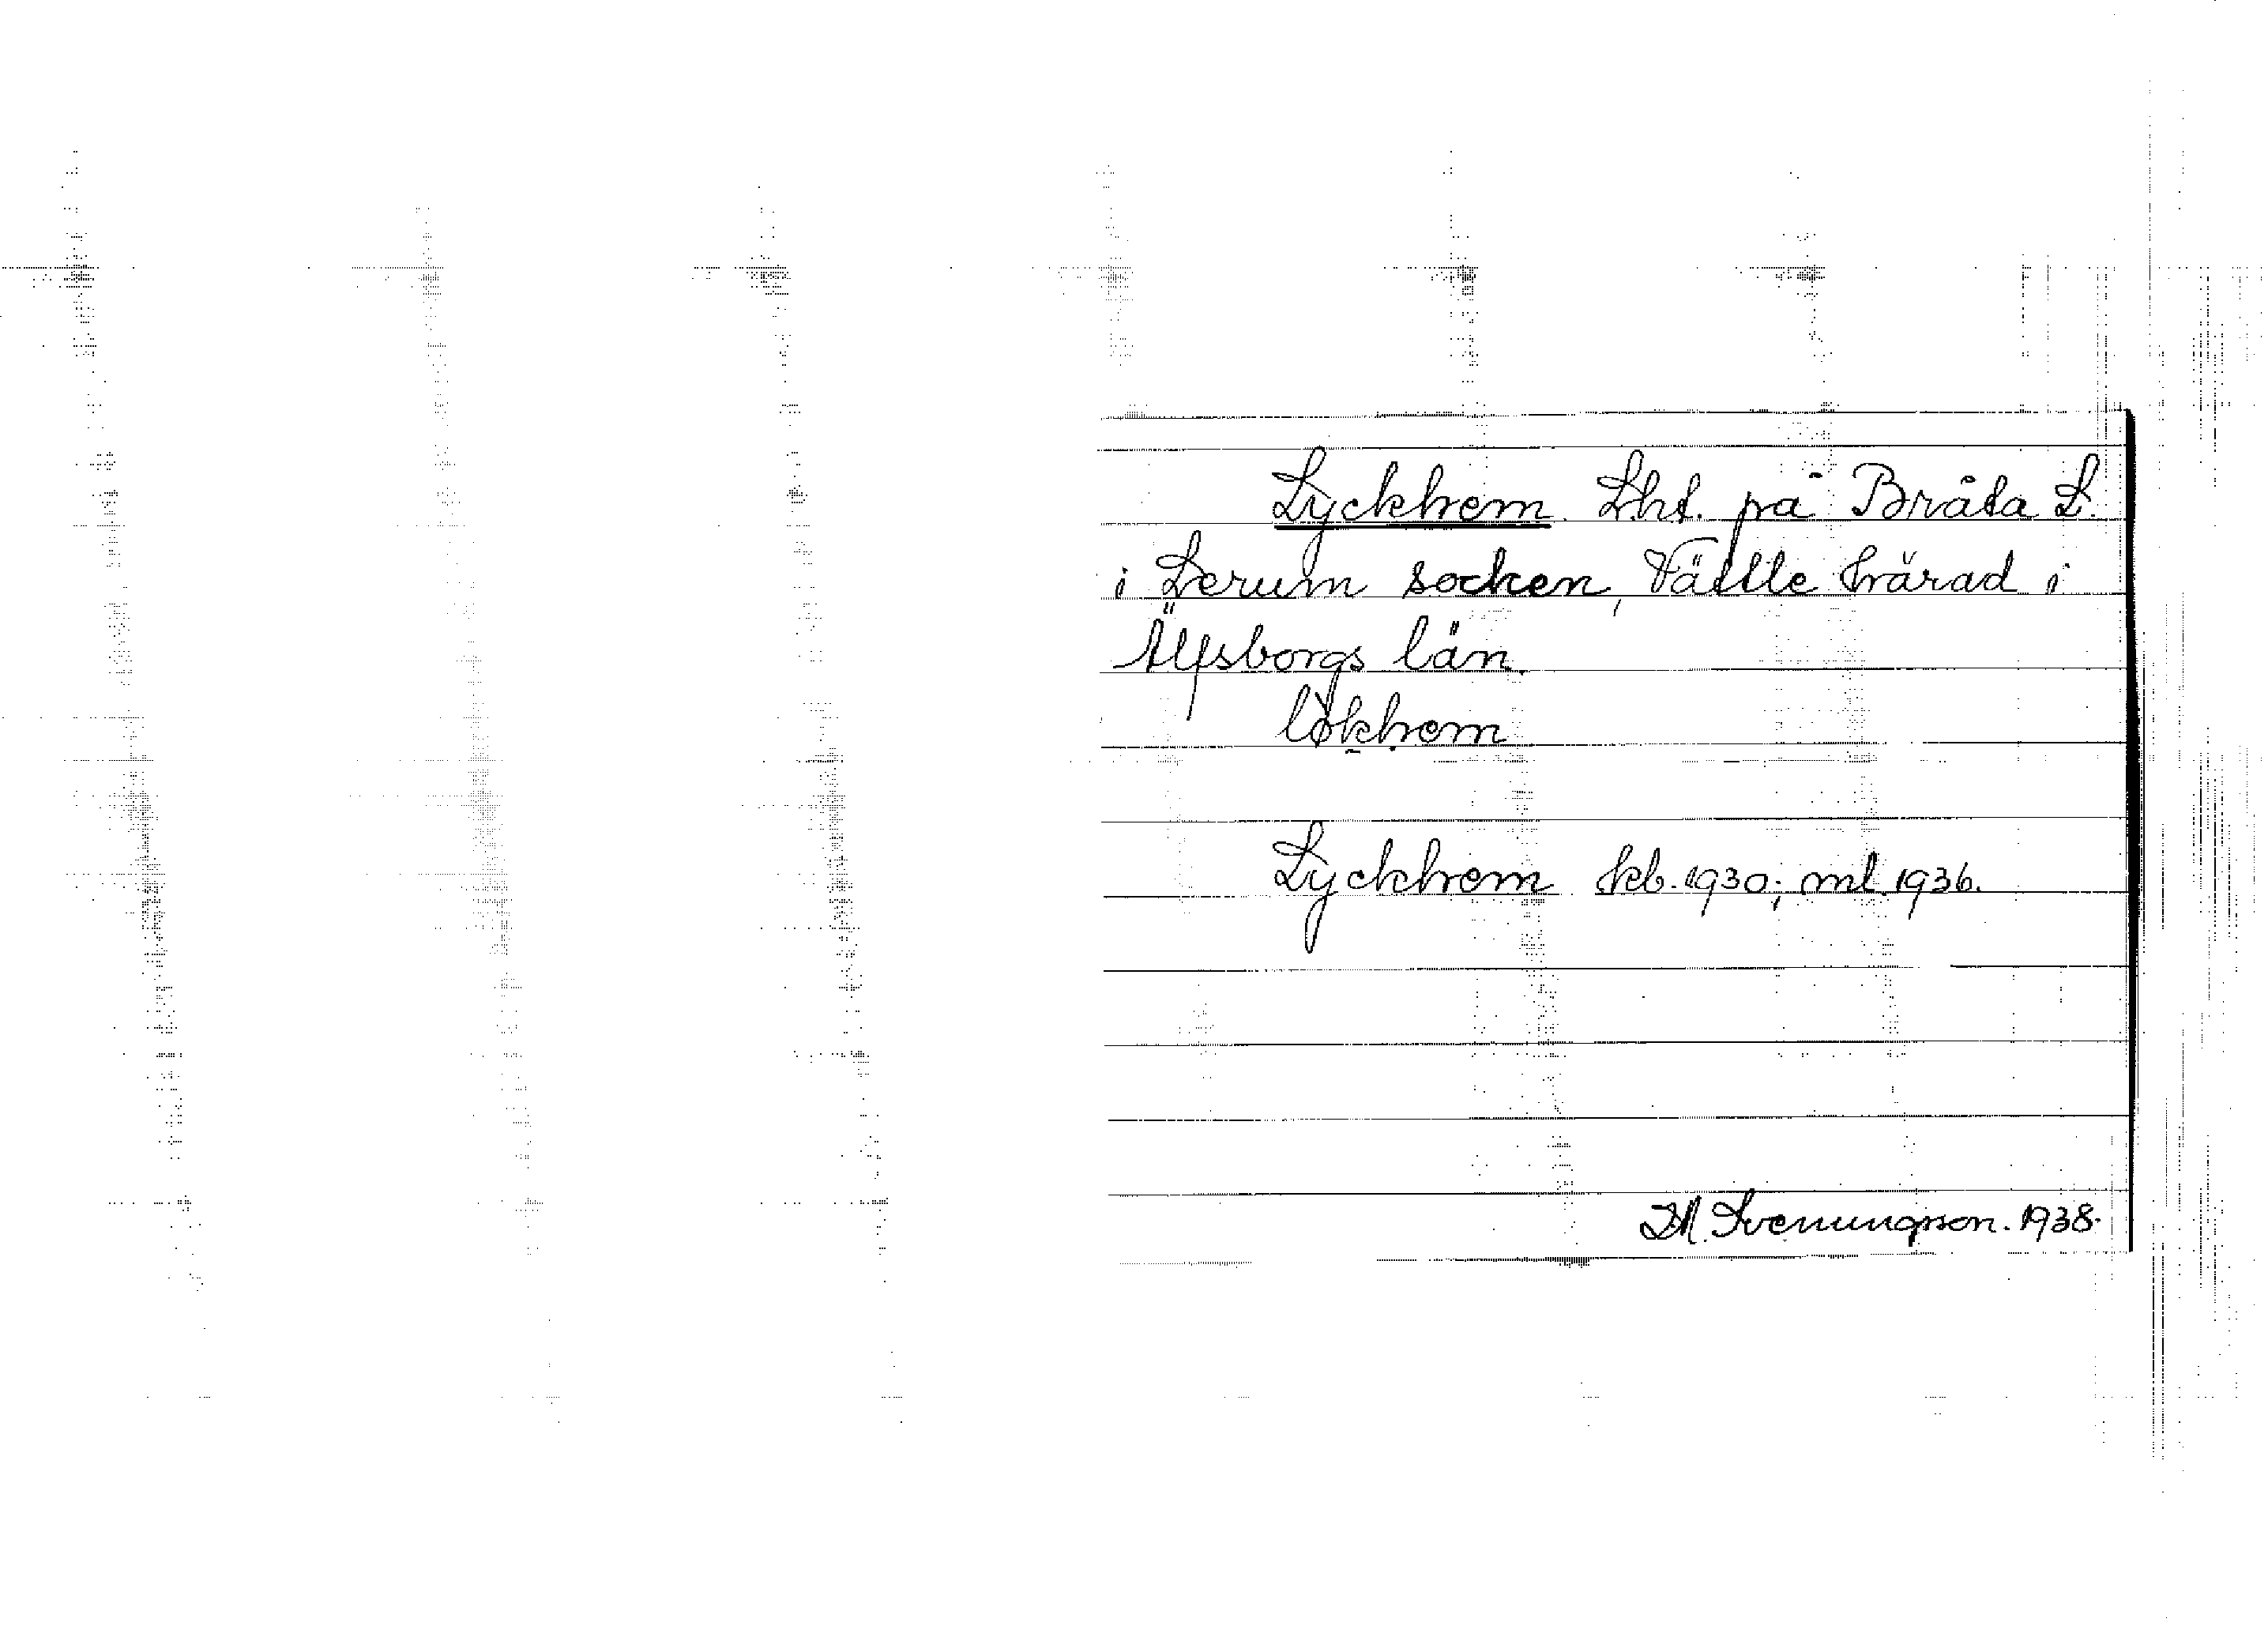 Lyckhem. Lht. på Bråta L.
i Lerum socken, Vättle härad i
Älfsborgs län.
Lyckhem kb. 1930; ml. 1936.
Svenungson. 1938.